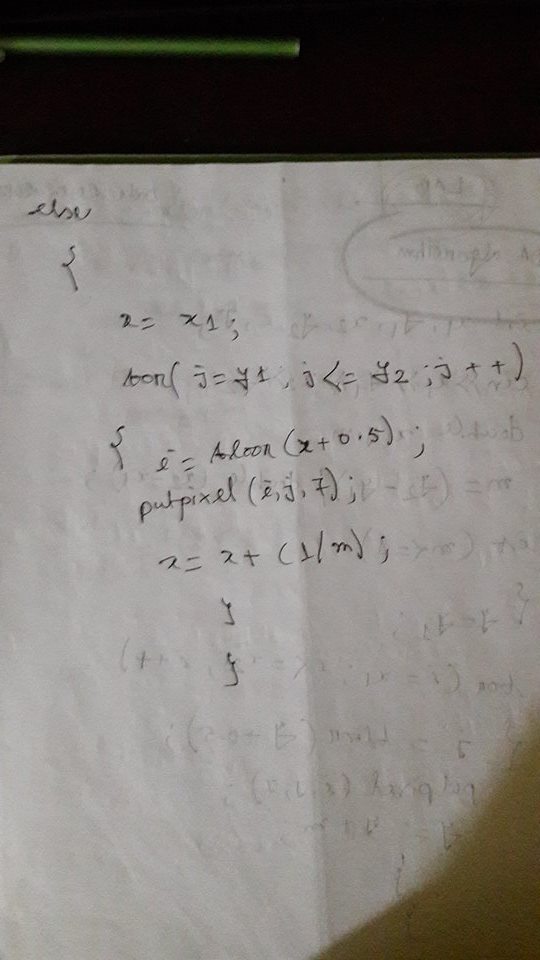 else
{
x = x1;
for( j = y1, j <= y2 ; j + +)
{ i = floor (x + 0.5) ;
putpixel (i, j, 7) ;
x = x + (1/m) ;
}
}